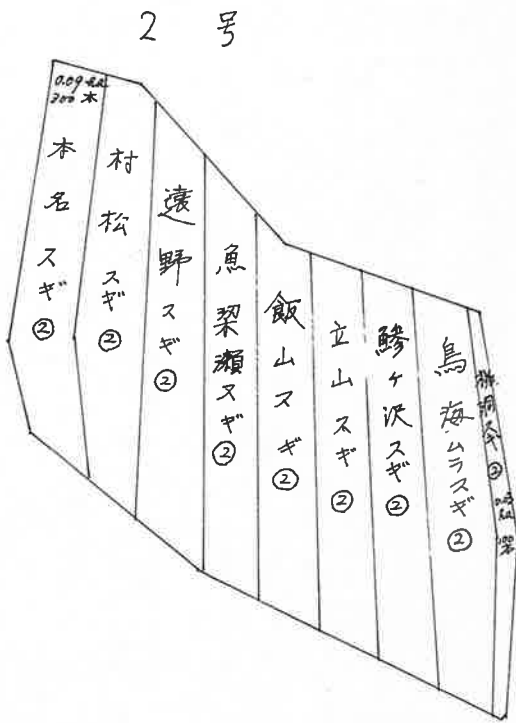 2 号
0.09 ha
300 本
本名スギ ②
村松スギ ②
遠野スギ ②
魚梁瀬スギ ②
飯山スギ ②
立山スギ ②
鰺ヶ沢スギ ②
鳥海ムラスギ ②
桃洞スギ ②
0.03
ha
100
本